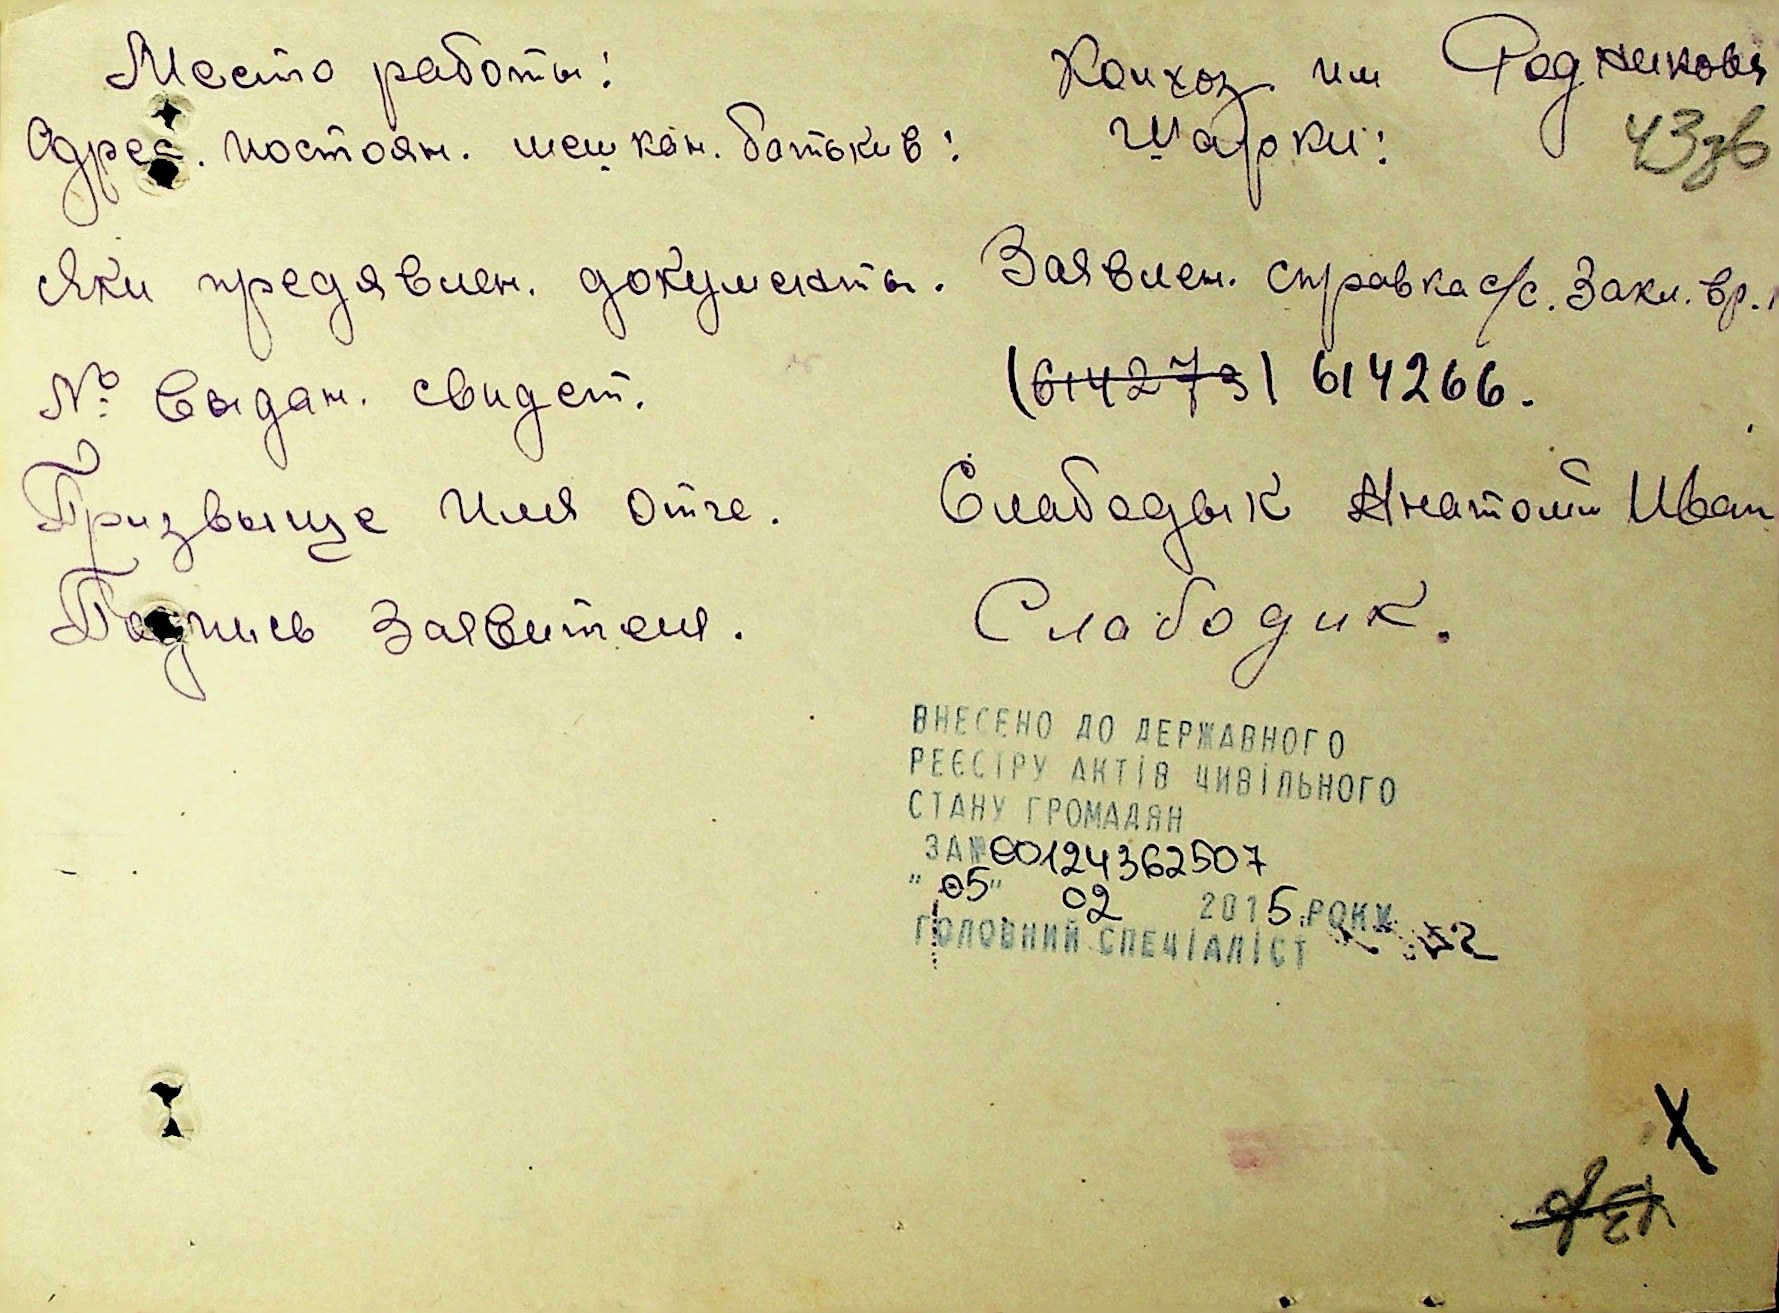 Место работы: Колхоз им Родникова
Адрес. постоян. мешкан. батькив: Шарки: 43зв
Яки предявлен. документы. Заявлен. справка с/с. Закл. вр.
№ выдан. свидет. (614273) 614266.
Призвыще Имя Отче. Слабодык Анатолий Иван
Подпись Заявителя. Слабодик.
ВНЕСЕНО ДО ДЕРЖАВНОГО
РЕЄСТРУ АКТІВ ЦИВІЛЬНОГО
СТАНУ ГРОМАДЯН
ЗА № 00124362507
"05" 02 2015 РОКУ
ГОЛОВНИЙ СПЕЦІАЛІСТ